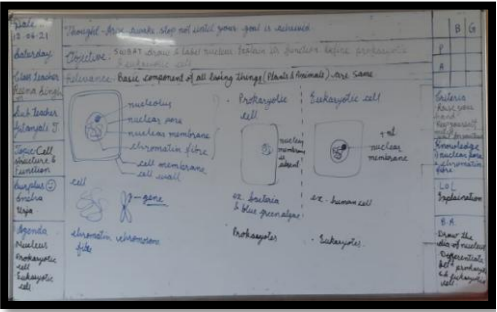 Date
12-06-21
Saturday
Class teacher
Reena Singh
Sub teacher
Topic Cell
structure &
function
Surplus
Urja
Agenda
Nucleus
Prokaryotic
cell
Eukaryotic
cell
Thought - Arise awake stop not until your goal is achieved.
Objective - SWBAT draw & label nucleus explain its function define prokaryotic
& eukaryotic cell
Relevance - Basic component of all living things (Plants & Animals) are same
nucleolus
nuclear pore
nuclear membrane
chromatin fibre
cell membrane
cell wall
cell
gene
chromatin chromosome
fibre
Prokaryotic
cell
nuclear
membrane
is
absent
ex. bacteria
& blue green algae
Prokaryotes
Eukaryotic cell
nuclear
membrane
ex - human cell
Eukaryotes
B G
P
A
Criteria
Raise your
hand
Knowledge
nuclear pore
chromatin
fibre
L.O.L
Explanation
B.A
Draw the
dia of nucleus
Differentiate
prokaryotic
& eukaryotic
cell